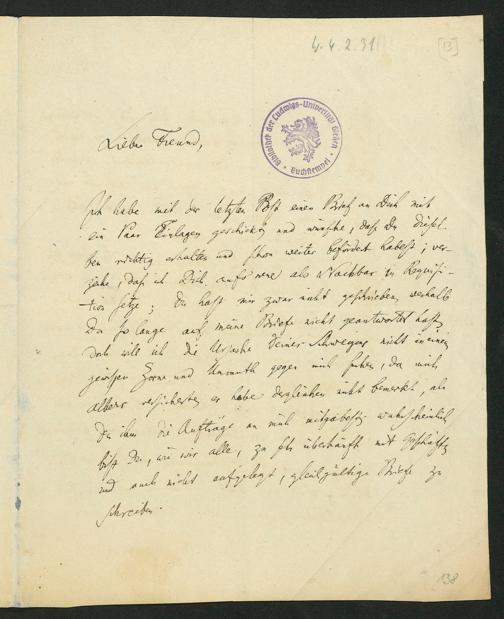 4. 4. 2. 31
[13]
Bibliothek der Ludwigs-Universität Gießen
Buchstempel
Lieber Freund,
Ich habe mit der letzten Post einen Brief an Dich mit
ein Paar Einlagen geschickt und wünsche, daß Du diesel-
ben richtig erhalten und schon weiter befördert habest; ver-
zeihe, daß ich Dich aufs neue als Nachbar in Requisi-
tion setze; Du hast mir zwar nicht geschrieben, weshalb
Du so lange auf meine Briefe nicht geantwortet hast,
doch will ich die Ursache Deines Schweigens nicht in einem
gewissen Zorne und Unmuth gegen mich suchen, da mich
Albers versicherte, er habe dergleichen nicht bemerkt, als
Du ihm die Aufträge an mich mitgabest; wahrscheinlich
bist Du, wie wir alle, zu sehr überhäuft mit Geschäften
und auch nicht aufgelegt, gleichgültige Briefe zu
schreiben.
138